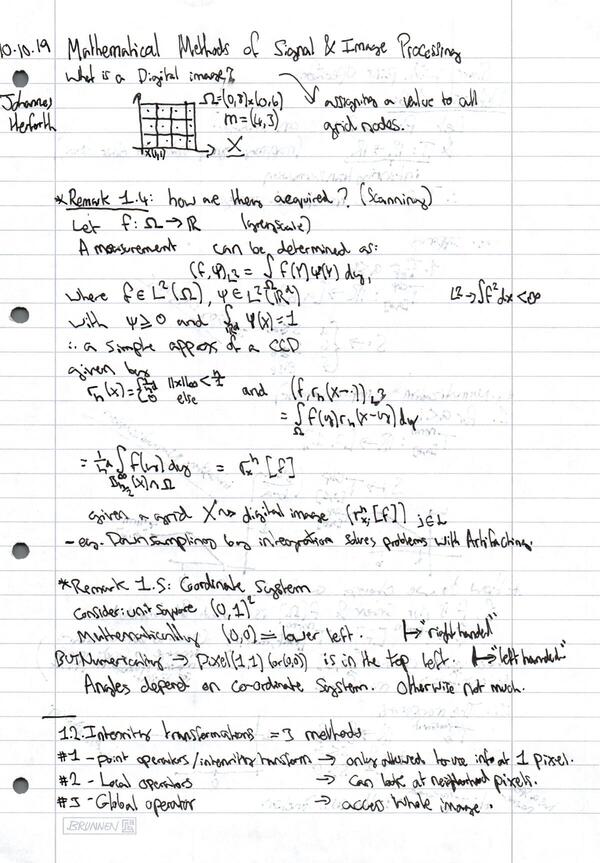 10.10.19 Mathematical Methods of Signal & Image Processing
What is a Digital image?
Johannes
Herforth
Ω=(0,8)×(0,6)
m=(4,3)
X
x(1,1)
assigning a value to all
grid nodes.
*Remark 1.4: how are they acquired? (Scanning)
Let f: Ω → ℝ (greyscale)
A measurement can be determined as:
(f,ψ)_L² = ∫_Ω f(y)ψ(y) dy,
where f ∈ L²(Ω), ψ ∈ L²(ℝᵈ)
L² → ∫f²dx < ∞
with ψ ≥ 0 and ∫_ℝᵈ ψ(x) = 1
∴ a simple approx of a CCD
given by
r_h(x) = { 1/hᵈ ||x||∞ < h/2
0 else
and (f, r_h(x-·))_L²
= ∫_Ω f(y) r_h(x-y) dy
= 1/hᵈ ∫ f(y) dy = r_x^h [f]
B^∞_h/2 (x) ∩ Ω
given a grid X ⇝ digital image (r^h_xj [f]) j∈
- eg. Downsampling by integration solves problems with Artifacting.
*Remark 1.5: Coordinate System
Consider: unit square (0,1)²
Mathematically (0,0) = lower left. ↦ "right handed"
BUT Numerically → pixel (1,1) (or (0,0)) is in the top left. ↦ "left handed"
Angles depend on co-ordinate System. Otherwise not much.
1.2. Intensity transformations = 3 methods
#1 - point operators / intensity transform → only allowed to use info at 1 pixel.
#2 - Local operators → can look at neighborhood pixels.
#3 - Global operator → access whole image.
BRUNNEN